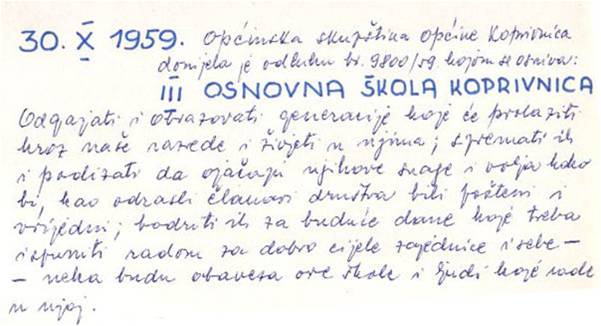 30. X 1959. Općinska skupština općine Koprivnica
donijela je odluku br. 9800/59 kojom se osniva:
III OSNOVNA ŠKOLA KOPRIVNICA
Odgajati i obrazovati generacije koje će prolaziti
kroz naše razrede i živjeti u njima; spremati ih
i podizati da ojačaju njihove snage i volja kako
bi, kao odrasli članovi društva bili pošteni i
vrijedni; bodriti ih za buduće dane koje treba
ispuniti radom za dobro cijele zajednice i sebe –
– neka budu obaveza ove škole i ljudi koje rade
u njoj.